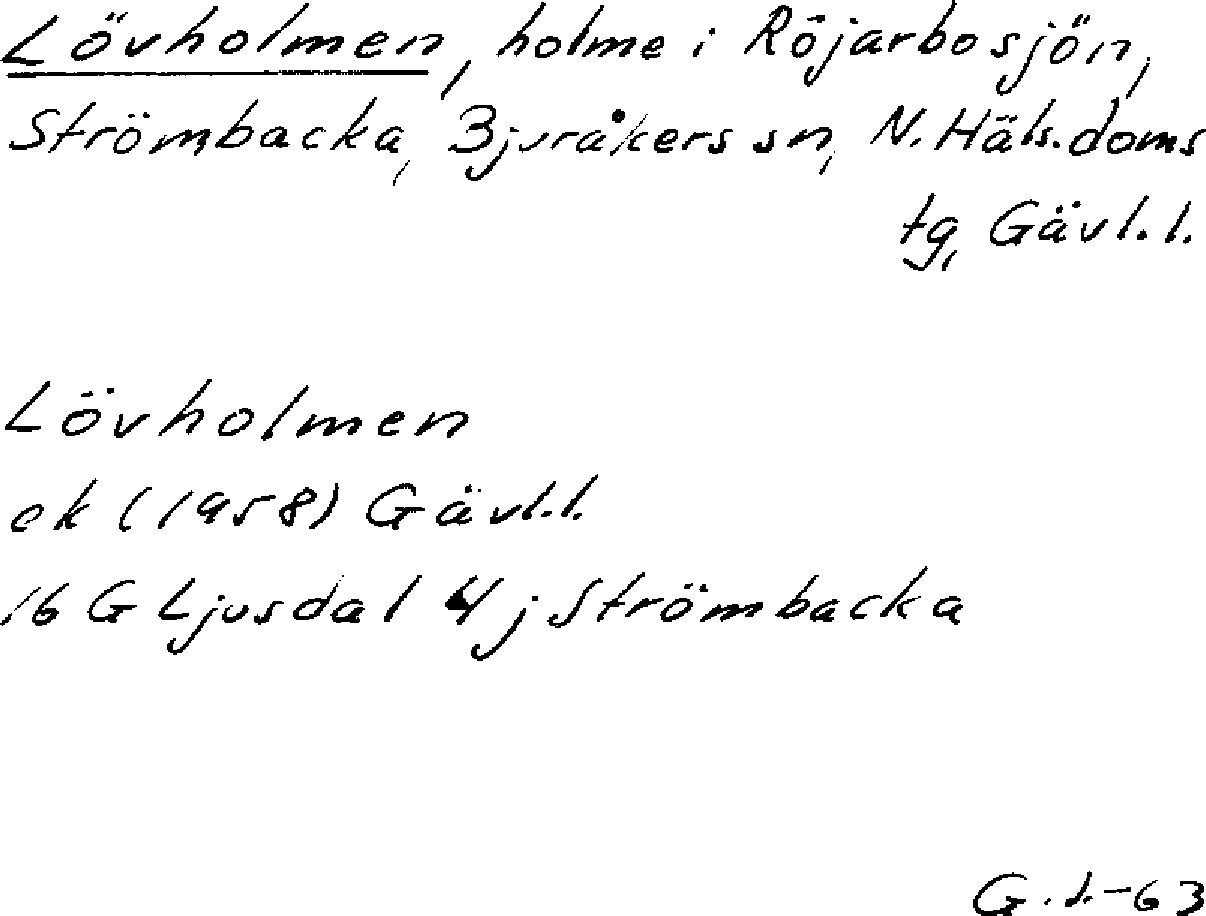 Lövholmen, holme i Röjarbosjön,
Strömbacka, Bjuråkers sn, N. Häls. doms
tg, Gävl. l.
Lövholmen
ek (1958) Gävl. l.
16 G Ljusdal 4j Strömbacka
-63